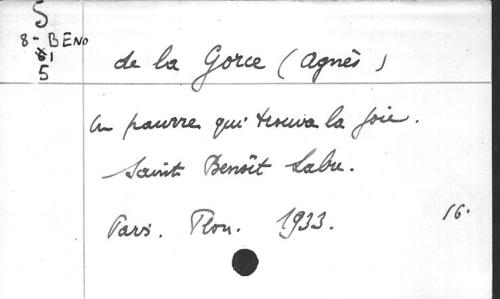 S
8- BENO
1
5
de la Gorce (Agnès)
Un pauvre qui trouva la joie.
Saint Benoît Labre.
Paris. Plon. 1933. 16.